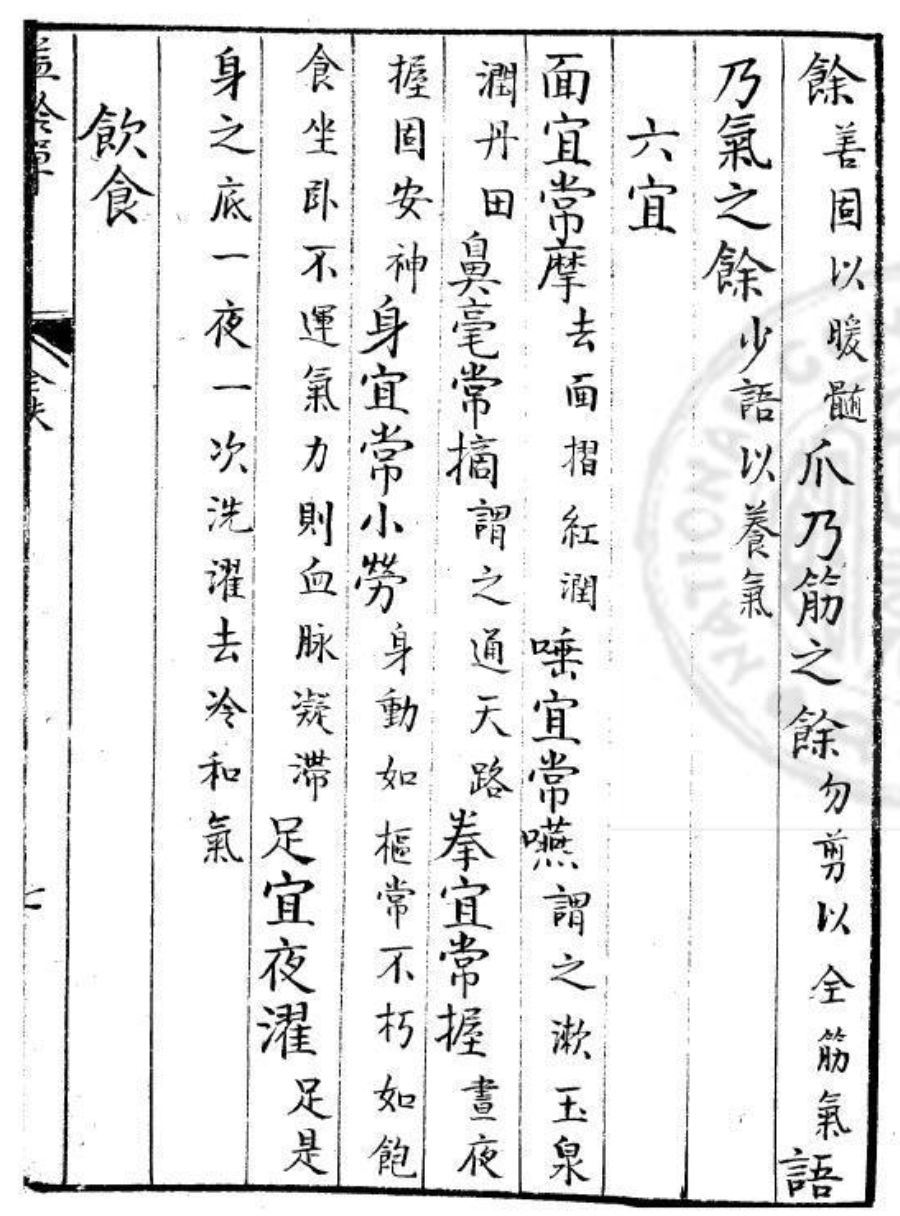 餘善固以暖髓爪乃筋之餘勿剪以全筋氣語
乃氣之餘少語以養氣
六宜
面宜常摩去面摺紅潤唾宜常嚥謂之漱玉泉
潤丹田鼻毫常摘謂之通天路拳宜常握晝夜
握固安神身宜常小勞身動如樞常不朽如飽
食坐臥不運氣力則血脉凝滯足宜夜濯足是
身之底一夜一次洗濯去冷和氣
飲食
七
NATIONAL C